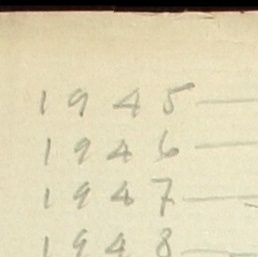 1945 —
1946 —
1947 —
1948 —